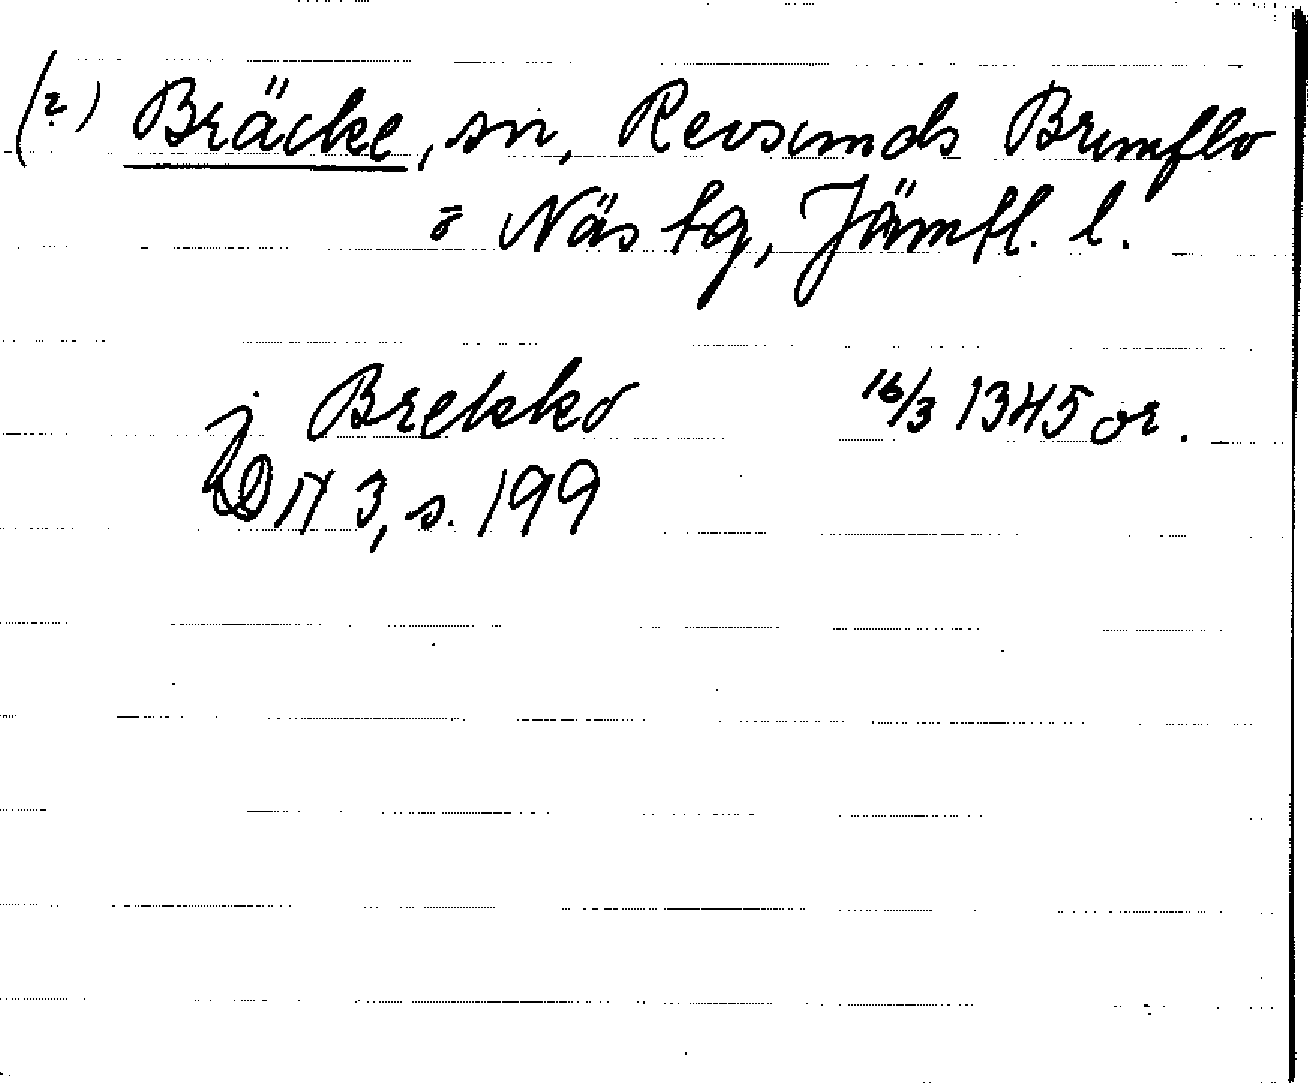 (?) Bräcke, sn, Revsunds Brunflo
o Näs tg, Jämtl. l.
j Brekko 16/3 1345 or.
DN 3, s. 199